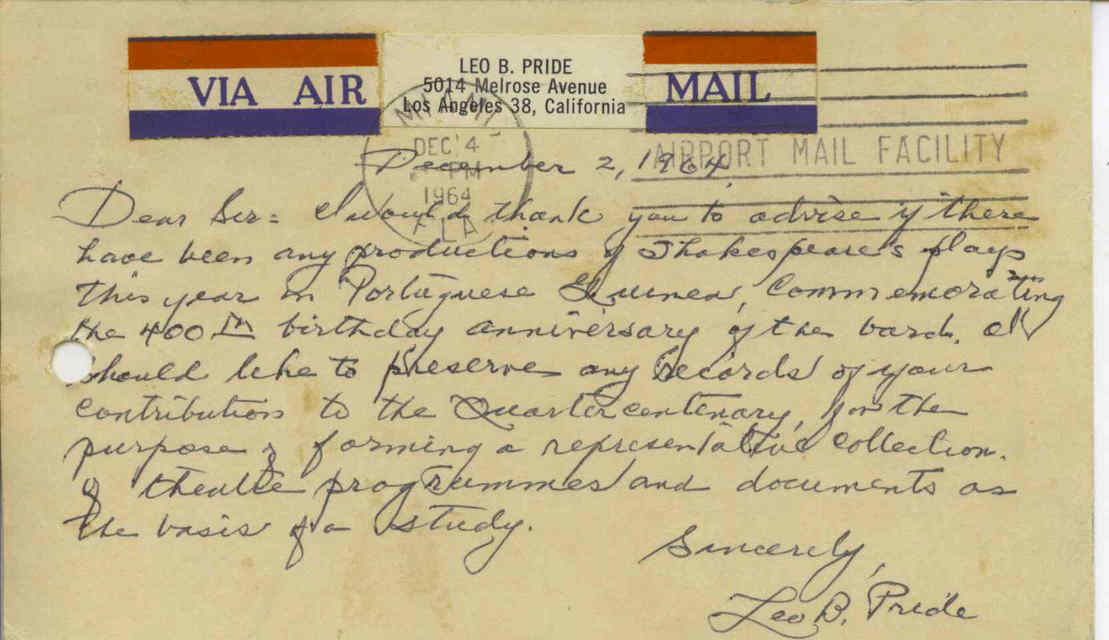 VIA AIR
LEO B. PRIDE
5014 Melrose Avenue
Los Angeles 38, California
MAIL
MIAMI
DEC 4
PM
1964
FLA
AIRPORT MAIL FACILITY
December 2, 1964
Dear Sir: I would thank you to advise if there
have been any productions of Shakespeare's plays
this year in Portuguese Guinea, Commemorating
the 400th birthday anniversary of the bard. I
should like to preserve any records of your
contribution to the Quartercentenary, for the
purpose of forming a representative collection
of theatre programmes and documents as
the basis of a study.
Sincerely,
Leo B. Pride